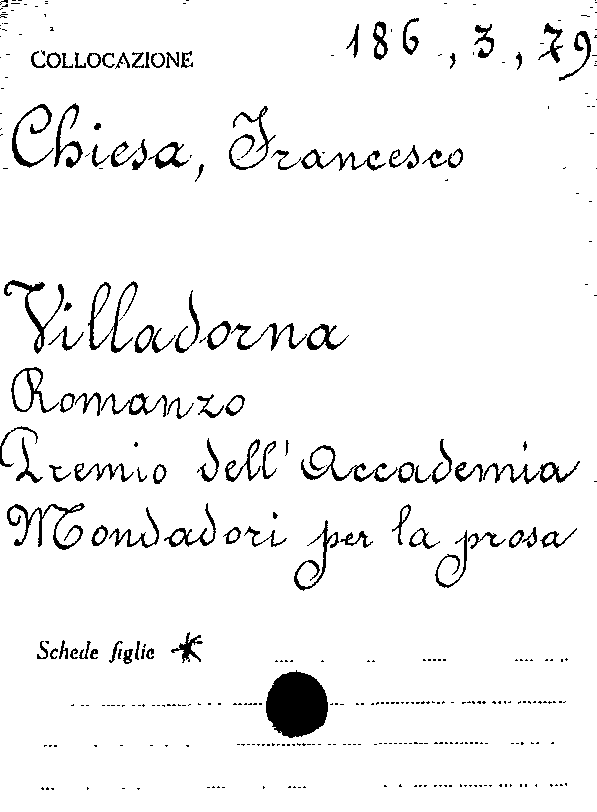 COLLOCAZIONE 186, 3, 79
Chiesa, Francesco
Villadorna
Romanzo
Premio dell'Accademia
Mondadori per la prosa
Schede figlie